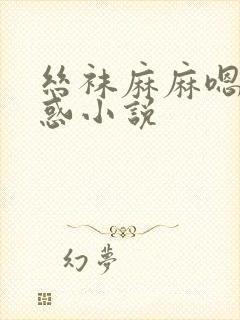 丝袜麻麻嗯
惑小说
幻夢